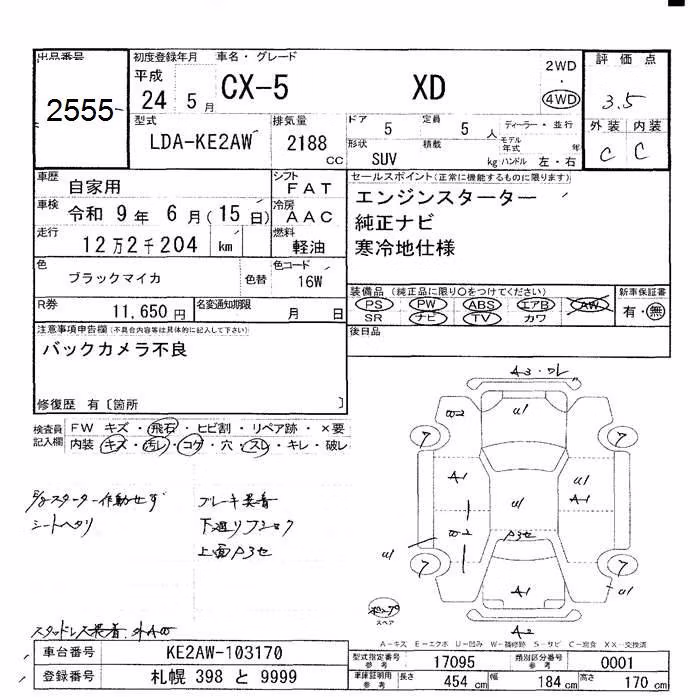 出品番号 2555
初度登録年月 平成 24 5月
車名・グレード CX-5 XD
2WD ・ 4WD
評価点 3.5
外装 内装
C C
型式 LDA-KE2AW
排気量 2188 CC
ドア 5 定員 5 人 ディーラー・並行
形状 SUV 積載 kg モデル年式 年
ハンドル 左・右
車歴 自家用
シフト FAT
車検 令和 9年 6月(15日)
冷房 AAC
走行 12万2千204 km
燃料 軽油
色 ブラックマイカ 色替
色コード 16W
R券 11,650円 名変通知期限 月 日
セールスポイント(正常に機能するものに限ります)
エンジンスターター
純正ナビ
寒冷地仕様
装備品(純正品に限り○をつけてください)
PS PW ABS エアB AW
SR ナビ TV カワ
新車保証書
有・無
後日品
注意事項申告欄(不具合内容等は具体的に記入して下さい)
バックカメラ不良
修復歴 有〔箇所 〕
検査員記入欄 FW キズ・飛石・ヒビ割・リペア跡・×要
内装・キズ・汚レ・コゲ・穴・スレ・キレ・破レ
スターター作動せず
シートヘタリ
ブレーキ
下廻り
上面 P3セ
A3・ワレ
U1
W2
7
7
A1
U1
U1
A1
W2
P3セ
U1
7
7
A1
U1
A2
スペア
スタッドレス装着
A-キズ E-エクボ U-凹み W-補修跡 S-サビ C-腐食 XX-交換済
車台番号 KE2AW-103170
登録番号 札幌 398 と 9999
型式指定番号 参考 17095 類別区分番号 参考 0001
車庫証明用 参考 長さ 454 cm 幅 184 cm 高さ 170 cm